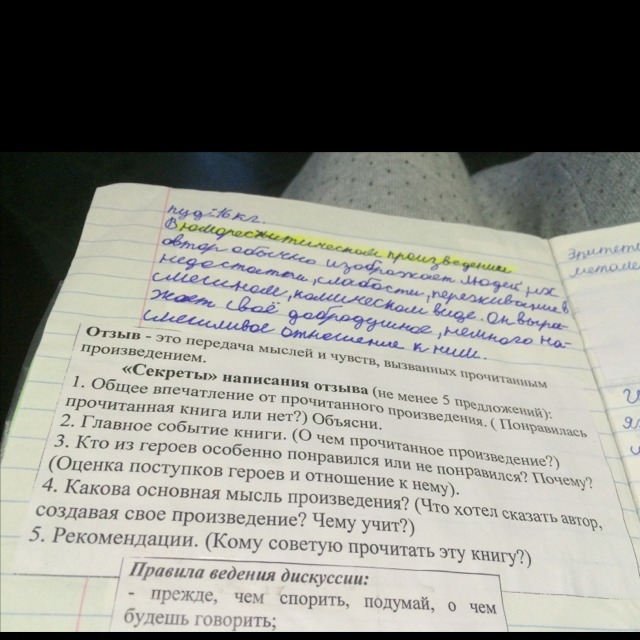 пуд-16 кг.
В юмористическом произведении
автор обычно изображает людей, их
недостатки, слабости, переживание в
смешном, комическом виде. Он выра-
жает своё добродушное, немного на-
смешливое отношение к ним.
Отзыв - это передача мыслей и чувств, вызванных прочитанным
произведением.
«Секреты» написания отзыва (не менее 5 предложений):
1. Общее впечатление от прочитанного произведения. ( Понравилась
прочитанная книга или нет?) Объясни.
2. Главное событие книги. (О чем прочитанное произведение?)
3. Кто из героев особенно понравился или не понравился? Почему?
(Оценка поступков героев и отношение к нему).
4. Какова основная мысль произведения? (Что хотел сказать автор,
создавая свое произведение? Чему учит?)
5. Рекомендации. (Кому советую прочитать эту книгу?)
Правила ведения дискуссии:
- прежде, чем спорить, подумай, о чем
будешь говорить;